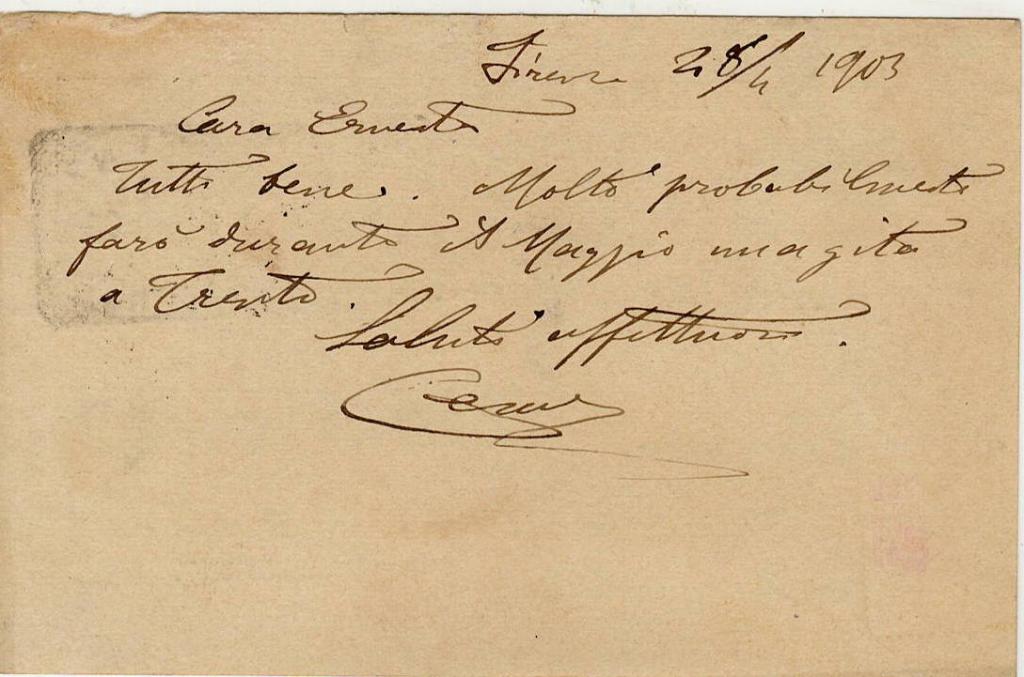 Firenze 28/4 1903
Cara Ernesta
Tutti bene. Molto probabilmente
farò durante il Maggio una gita
a Trento.
Saluti affettuosi.
Cesare